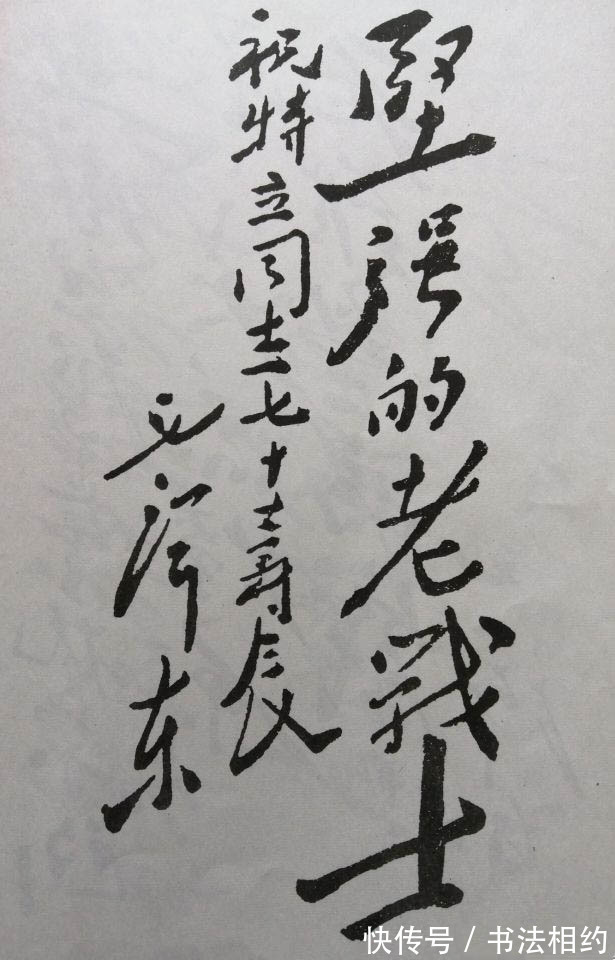 堅强的老戰士
祝特立同志七十壽辰
毛泽东
快传号 / 书法相约